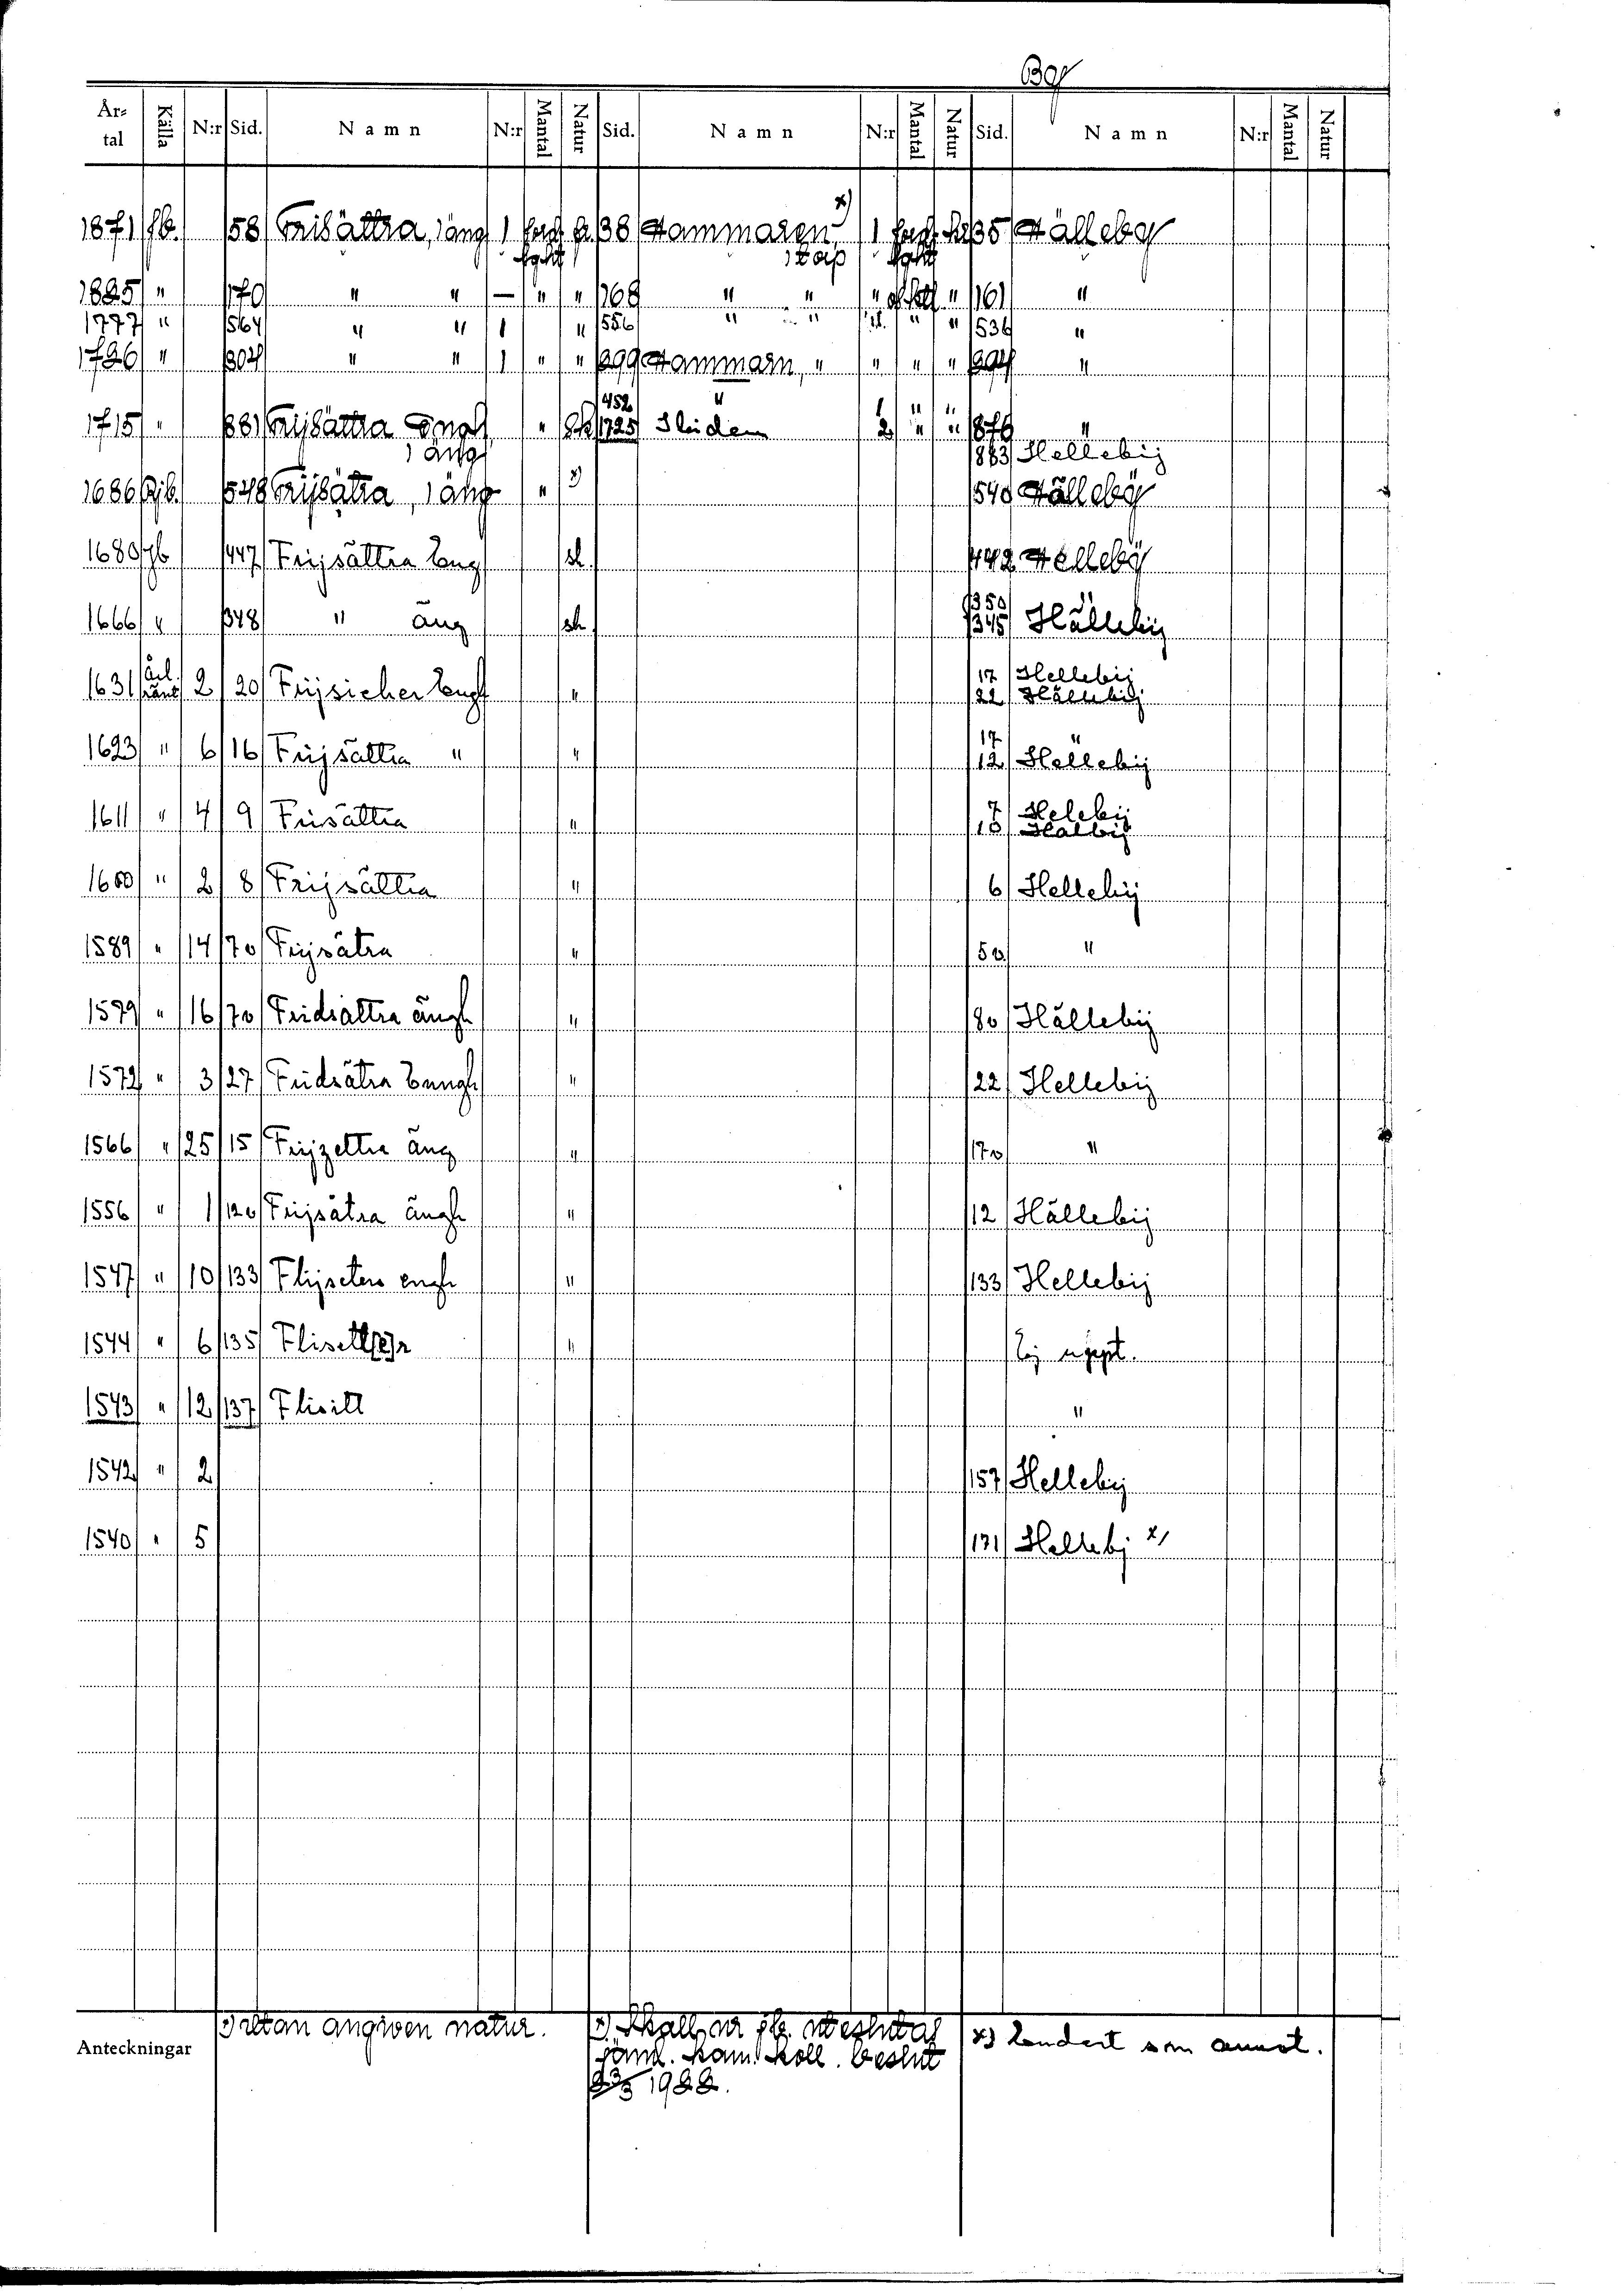 By
År-tal Källa N:r Sid. Namn N:r Mantal Natur Sid. Namn N:r Mantal Natur Sid. Namn N:r Mantal Natur
1871 Jb. 58 Frisättra, 1 äng 1 38 Hammaren, x) 1 35 Hälleby
1825 " 170 " " — " " 168 " " " " 161 "
1777 " 564 " " 1 " 556 " " " " 536 "
1726 " 304 " " 1 " " 299 Hammarn, " " " " 294 "
452 " 1 " "
1715 " 881 Frijsättra Engh " Sk 1725 2 " " 876 "
1 äng 883 Hellebij
1686 Rjb. 548 Frijsätra, 1 äng " x) 540 Hälleby
1680 Jb 447 Frijsättra Eng sk. 442 Helleby
350 "
1666 " 348 " äng sk 345 Hällebij
Årl. 17 Hellebij
1631 ränt 2 20 Frijsicher Engh " 22 Hällebij
17 "
1623 " 6 16 Frijsättra " " 12 Hellebij
7 Helebij
1611 " 4 9 Frisättra " 10 Halbij
1600 " 2 8 Frijsättra " 6 Hellebij
1589 " 14 70 Frijsätra " 50 "
1579 " 16 70 Fridsättra ängh " 80 Hällebij
1572 " 3 27 Fridsätra Enngh " 22 Hellebij
1566 " 25 15 Frijzettra äng " 170 "
1556 " 1 120 Frijsätra ängh " 12 Hällebij
1547 " 10 133 Flijseters engh " 133 Hellebij
1544 " 6 135 Flisett[e]r " Ej uppt.
1543 " 12 137 Flisitt "
1542 " 2 157 Hellebij
1540 " 5 131 Hellebj x)
Anteckningar
x) utan angiven natur.
x) Skall ur jb. uteslutas
jäml. kam. koll. beslut
23/3 1922.
x) som